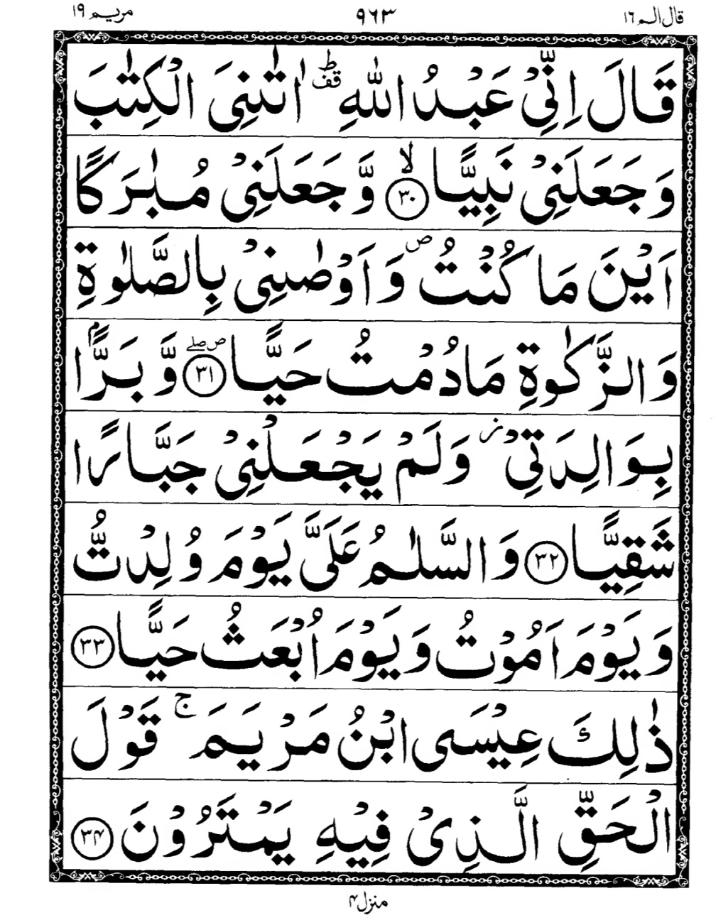 قال الم ١٦ ٩٦٣ مريم ١٩
قَالَ اِنِّيْ عَبْدُ اللّٰهِ ۣقف ؕ اٰتٰنِيَ الْكِتٰبَ
وَجَعَلَنِيْ نَبِيًّا ۙ‏﴿۳۰﴾ وَّجَعَلَنِيْ مُبٰرَكًا
اَيْنَ مَا كُنْتُ ۪ وَاَوْصٰنِيْ بِالصَّلٰوةِ
وَالزَّكٰوةِ مَادُمْتُ حَيًّا ۪ۖ ﴿۳۱﴾ وَّبَرًّۢا
بِوَالِدَتِيْ ز وَلَمْ يَجْعَلْنِيْ جَبَّارًا
شَقِيًّا ﴿۳۲﴾ وَالسَّلٰمُ عَلَيَّ يَوْمَ وُلِدْتُّ
وَيَوْمَ اَمُوْتُ وَيَوْمَ اُبْعَثُ حَيًّا ﴿۳۳﴾
ذٰلِكَ عِيْسَى ابْنُ مَرْيَمَ ۚ قَوْلَ
الْحَقِّ الَّذِيْ فِيْهِ يَمْتَرُوْنَ ﴿۳۴﴾
منزل ۴